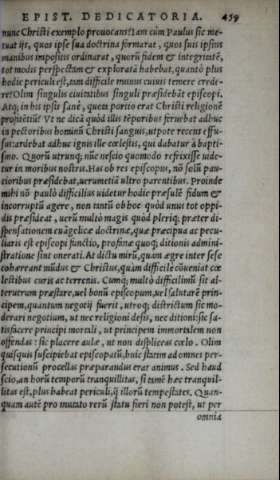 EPIST. DEDICATORIA. 459
nunc Christi exemplo prouocans? Iam cùm Paulus sic me-
tuat ijs, quos ipse sua doctrina formarat, quos suis ipsius
manibus imposuis ordinarat, quorũ fidem & integritatẽ,
tot modis perspectam & exploratã habebat, quantò plus
hodie periculi est, tam difficile munus cuiuis temere crede-
re? Olim singulis ciuitatibus singuli præsidebãt episcopi.
Atq; in his ipsis sanè, quota portio erat Christi religionẽ
professa? Vt ne dicã quòd illis tẽporibus feruebat adhuc
in pectoribus hominũ Christi sanguis, utpote recens effu-
sus: ardebat adhuc ignis ille cœlestis, qui dabatur à bapti-
smo. Quorũ utrunq; nũc nescio quomodo refrixisse uide-
tur in moribus nostris. Has ob res episcopus, nõ solũ pau-
cioribus præsidebat, uerumetiã ultro parentibus. Proinde
mihi nõ paulò difficilius uidetur hodie præsulẽ fidum &
incorruptũ agere, non tantũ ob hoc quòd unus tot oppi-
dis præsideat, uerũ multò magis quòd pleriq; præter di-
spensationem euãgelicæ doctrinæ, quæ præcipua ac pecu-
liaris est episcopi functio, profanæ quoq; ditionis admini-
stratione sint onerati. At dictu mirũ, quam ægre inter sese
cohæreant mũdus & Christus, quàm difficile cõueniat cœ
lestibus curis ac terrenis. Cumq; multò difficilimũ sit al-
terutrum præstare, uel bonũ episcopum, uel salutarẽ prin-
cipem, quantum negotij fuerit, utroq; districtum sic mo-
derari negotium, ut nec religioni desis, nec ditioni: sic sa-
tisfacere principi mortali, ut principem immortalem non
offendas: sic placere aulæ, ut non displiceas cœlo. Olim
quisquis suscipiebat episcopatũ, huic statim ad omnes per-
secutionũ procellas præparandus erat animus. Sed haud
scio, an horũ temporũ tranquillitas, si tamẽ hæc tranquil-
litas est, plus habeat periculi, q̃ illorũ tempestates. Quan-
quam autẽ pro mutato rerũ statu fieri non potest, ut per
omnia